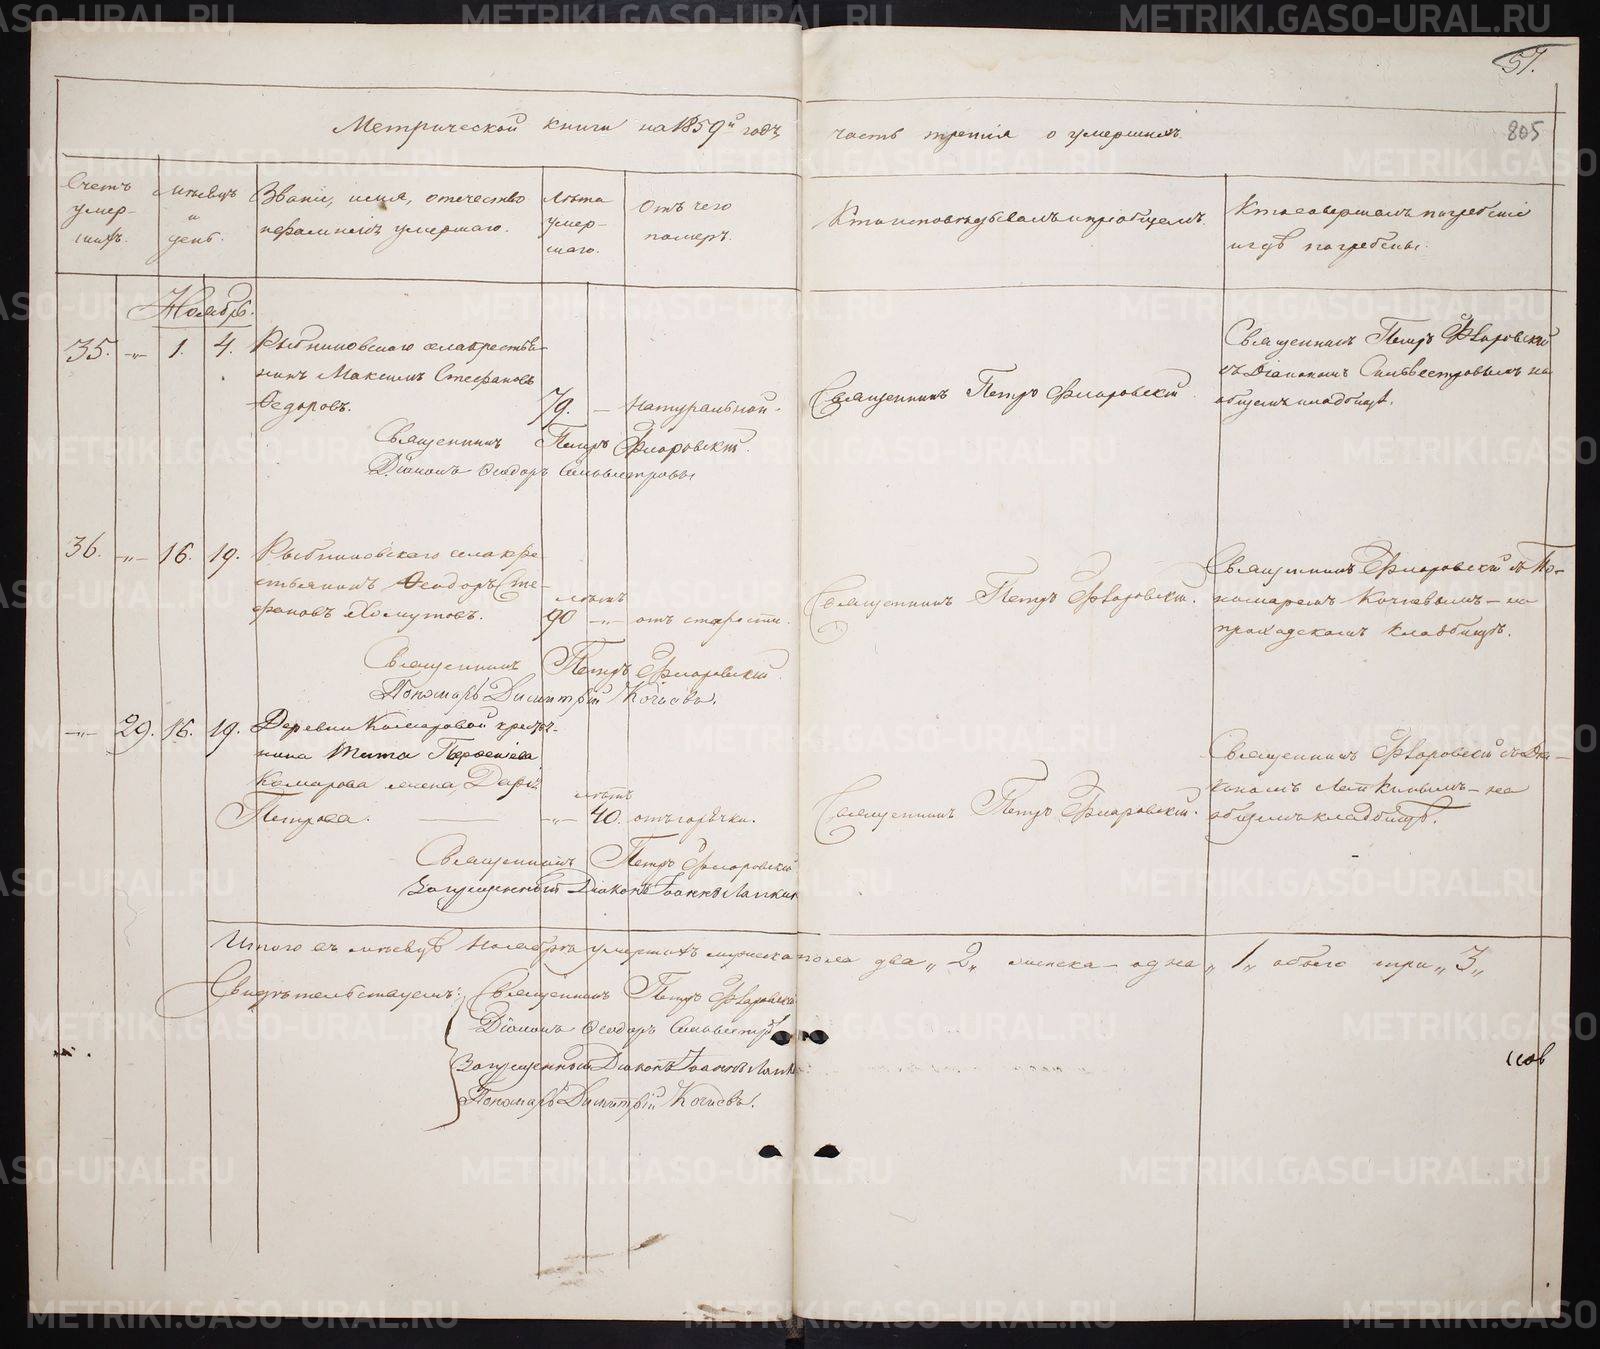 57.
805
Метрической книги на 1859й годъ часть третія о умершихъ
Счетъ умер-шихъ.
Мѣсяцъ и день.
Званіе, имя, отчество
и фамилія умершаго.
Лѣта умер-шаго.
Отъ чего померъ.
Кто исповѣдывалъ и пріобщалъ.
Кто совершалъ погребеніе
и гдѣ погребены.
Ноябрь.
35. -„- 1. 4. Рыбниковскаго села крестья-
нинъ Максимъ Стефановъ
Ѳедоровъ. 79. — Натуральной.
Священникъ Петръ Флоровскій.
Діаконъ Ѳеодоръ Сильвестровъ
Священникъ Петръ Флоровскій.
Священникъ Петръ Флоровскій
съ Діакономъ Сильвестровымъ на
общемъ кладбищѣ.
36. -„- 16. 19. Рыбниковскаго села кре-
стьянинъ Ѳеодоръ Сте-
фановъ Хомутовъ. лѣтъ 90 -„- отъ старости.
Священникъ Петръ Флоровскій.
Пономарь Димитрій Кочневъ.
Священникъ Петръ Флоровскій.
Священникъ Флоровскій съ По-
номаремъ Кочневымъ — на
приходскомъ кладбищѣ.
-„- 29. 16. 19. Деревни Комаровой крестья-
нина Тита
Комарова жена, Дарья
Петрова. -„- лѣтъ 40. отъ горячки.
Священникъ Петръ Флоровскій
Запрещенный Діаконъ Іоаннъ Лапкинъ
Священникъ Петръ Флоровскій.
Священникъ Флоровскій съ Діа-
кономъ Лапкинымъ — на
общемъ кладбищѣ.
Итого въ мѣсяцѣ Ноябрѣ умершихъ мужеска пола два „2„ женска — одна „1„ обоего три „3„
Свидѣтельствуемъ: Священникъ Петръ Флоровскій
Діаконъ Ѳеодоръ Сильвестровъ
Запрещенный Діаконъ Іоаннъ Лапкинъ
Пономарь Димитрій Кочневъ.
METRIKI.GASO-URAL.RU